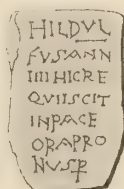 HILDVL
FVSANN
IIII HICRE
QVIISCIT
INPACE
ORAPRO
NVSP